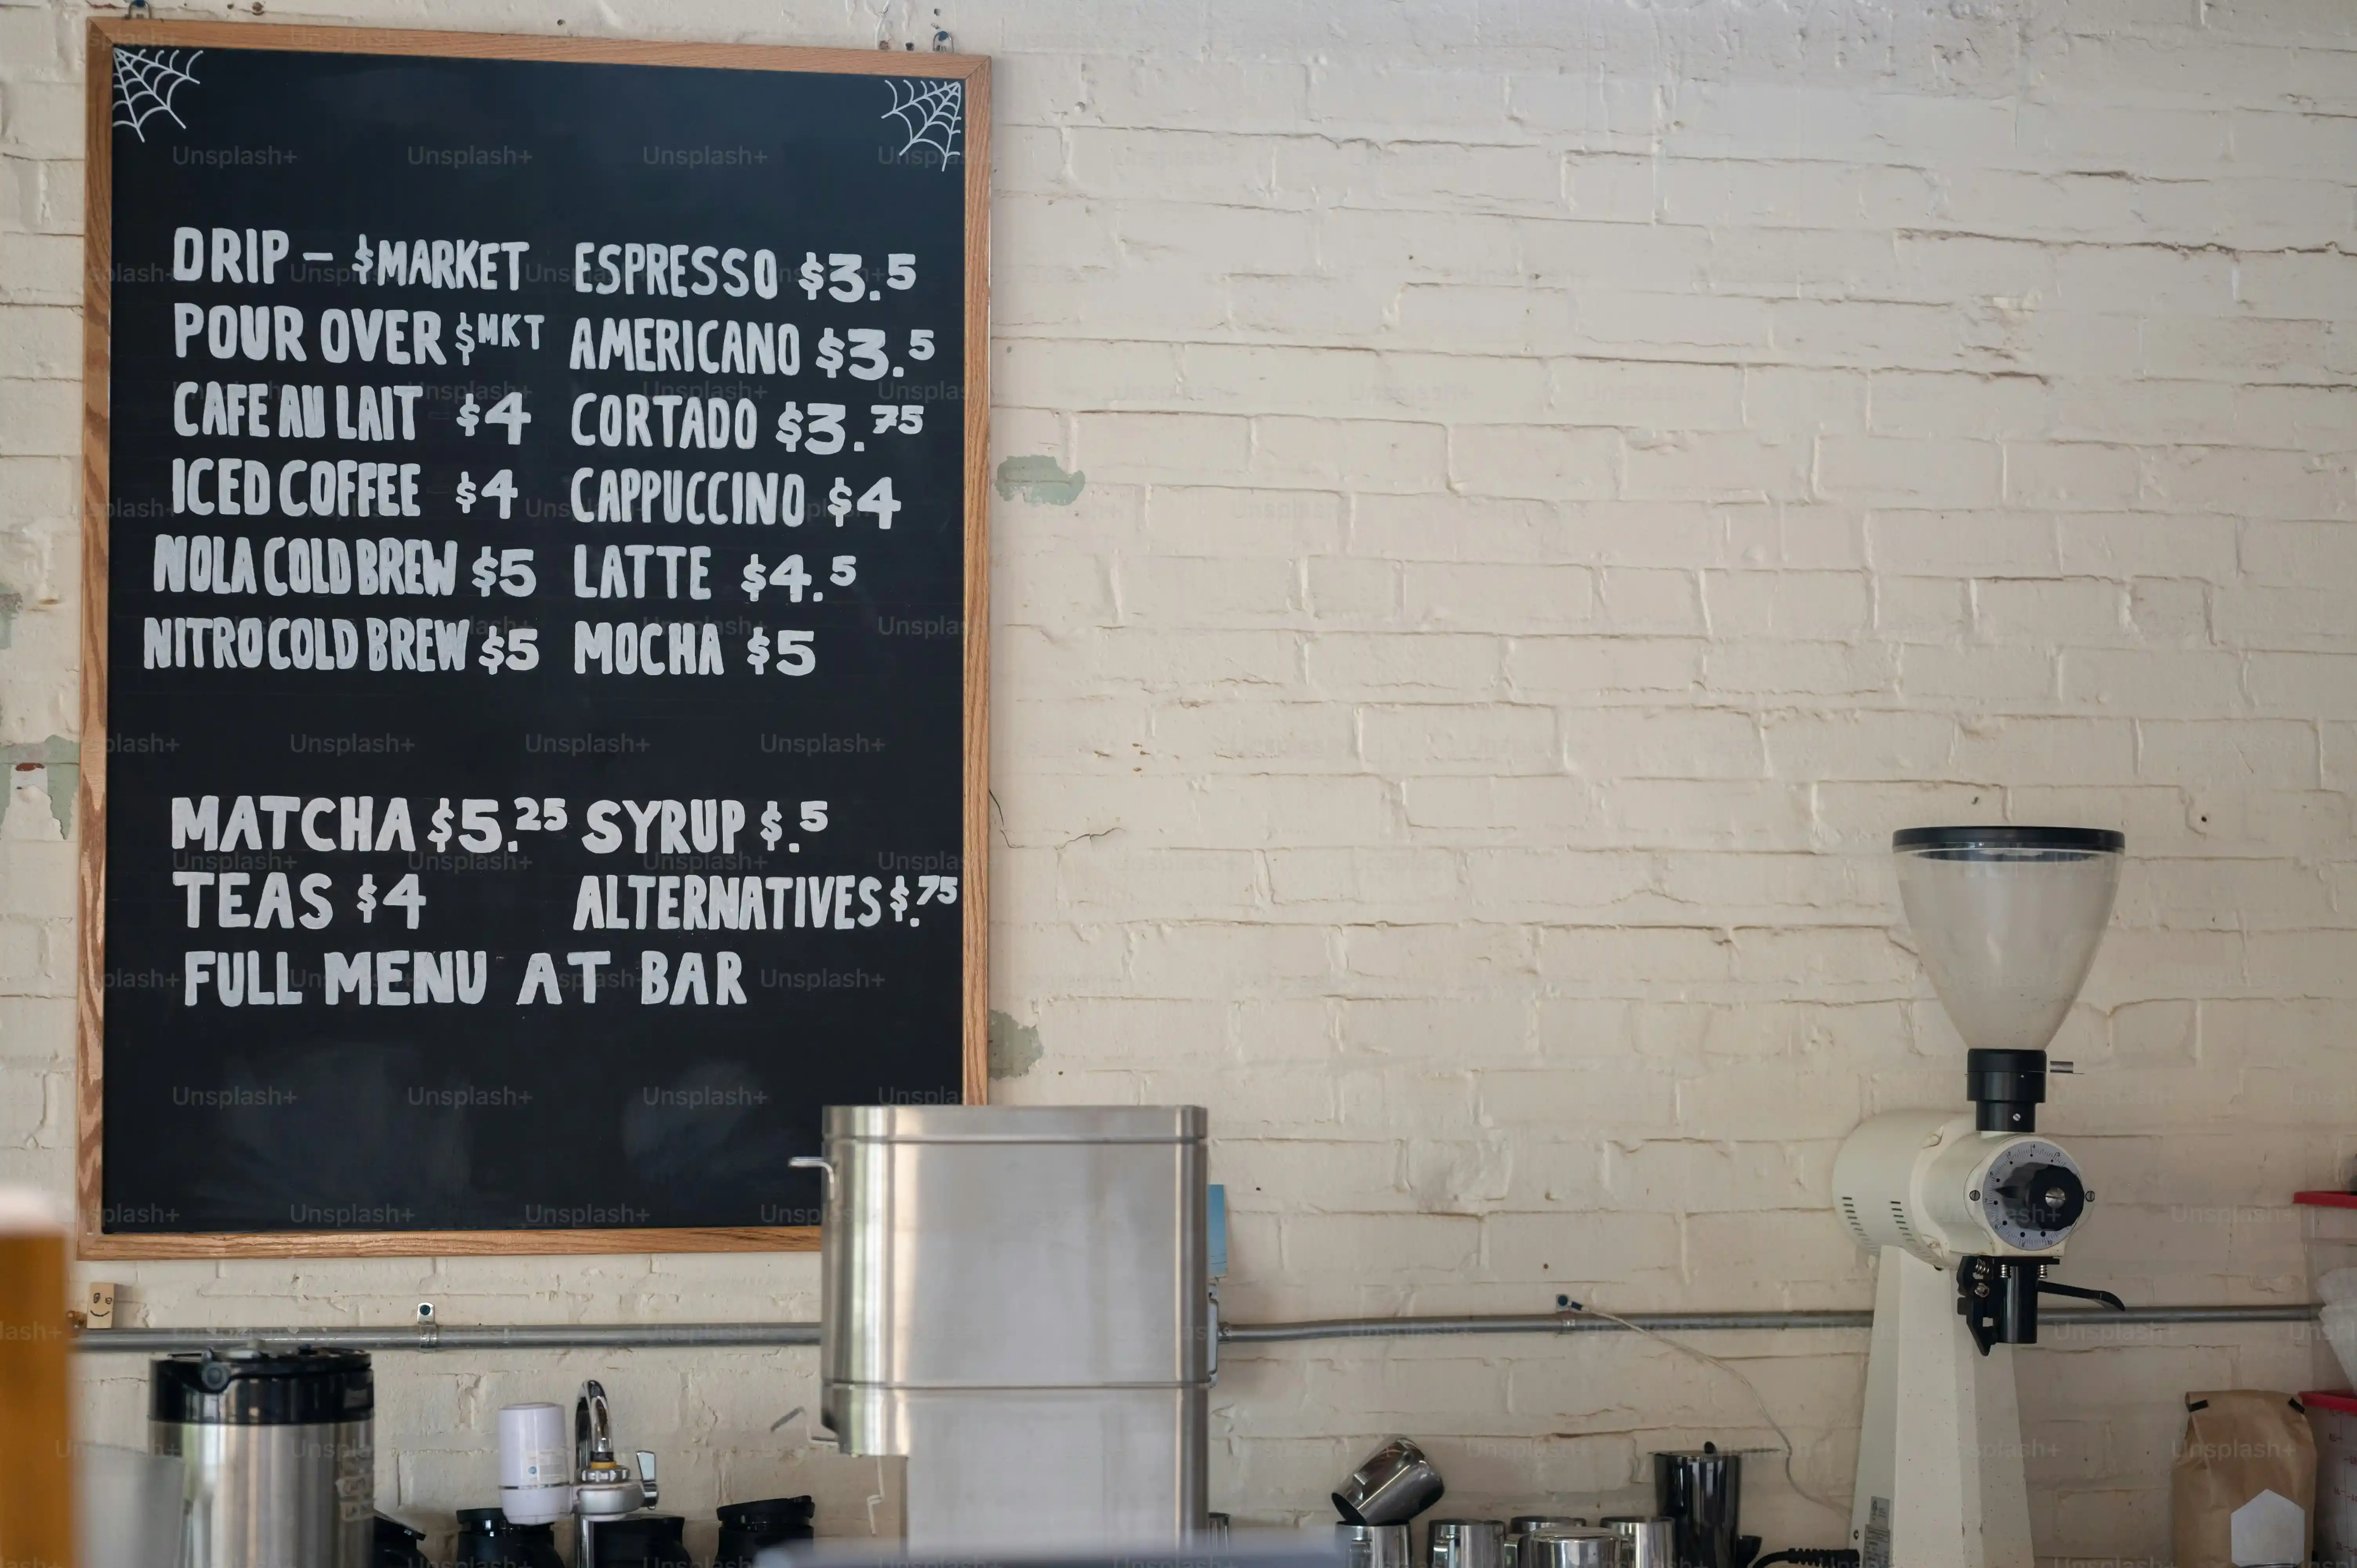 DRIP - $MARKET
POUR OVER $MKT
CAFE AU LAIT $4
ICED COFFEE $4
NOLA COLD BREW $5
NITRO COLD BREW $5
ESPRESSO $3.5
AMERICANO $3.5
CORTADO $3.75
CAPPUCCINO $4
LATTE $4.5
MOCHA $5
MATCHA $5.25
TEAS $4
SYRUP $.5
ALTERNATIVES $.75
FULL MENU AT BAR
Unsplash+